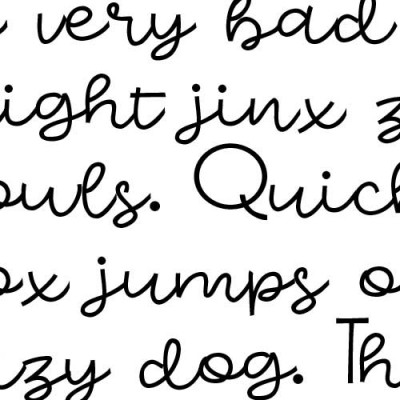 very bad
ight jinx z
owls. Quick
ox jumps o
zy dog. Th